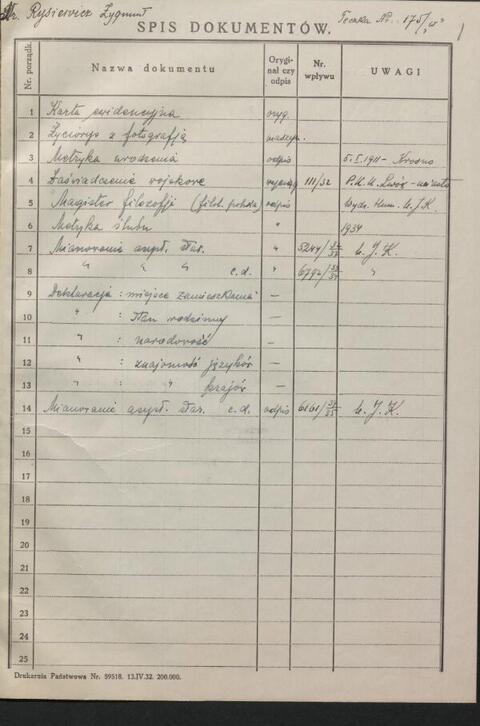 Mr. Rysiewicz Zygmunt
Teczka Nr. 175/
SPIS DOKUMENTÓW.
Nr. porządk. Nazwa dokumentu Oryginał czy odpis Nr. wpływu UWAGI
1 Karta ewidencyjna oryg.
2 Życiorys z fotografją
3 Metryka urodzenia odpis 5.I.1911 - Krosno
4 Zaświadczenie wojskowe 111/32 P.K.U. Lwów - miasto
5 Magister filozofji (filol. polska) odpis Wydz. Hum. U.J.K.
6 Metryka ślubu " 1934
7 Mianowanie asyst. star. " 5244/ 34/35 U.J.K.
8 " " " c.d. " 6792/ "
9 Deklaracja : miejsce zamieszkania —
10 " : Stan rodzinny —
11 " : narodowość —
12 " : znajomość języków —
13 " : " krajów —
14 Mianowanie asyst. star. c.d. odpis 6161/ U.J.K.
15
16
17
18
19
20
21
22
23
24
25
Drukarnia Państwowa Nr. 59518. 13.IV.32. 200.000.